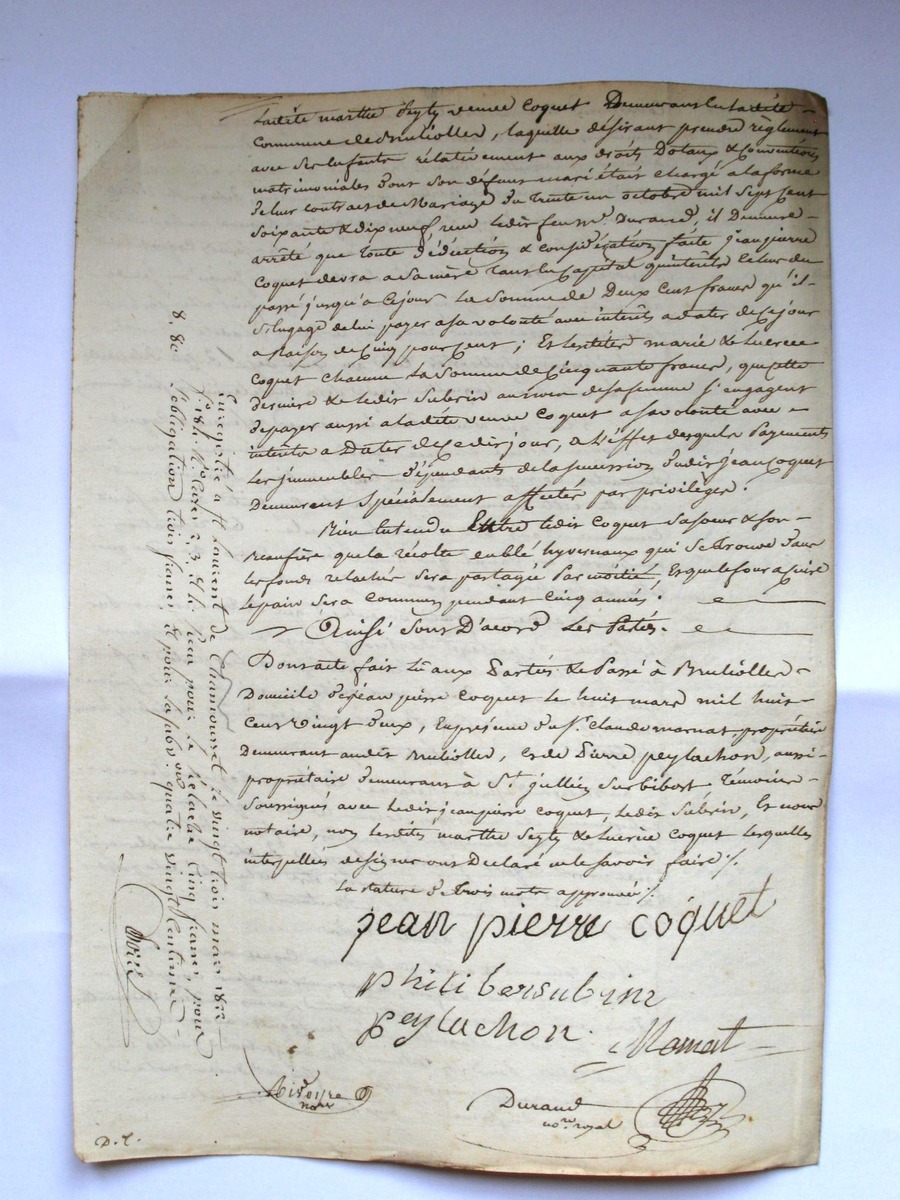 Ladite marthe Seyty veuve Coquet Demeurant en ladite
Commune de Brulliolles, laquelle désirant prendre règlement
avec ses Enfants rélativement aux droits Dotaux & Conventions
matrimoniales dont son défunt mari était chargé a la forme
de leur contract de Mariage du trente un octobre mil sept cent
soixante & dix neuf, reçu ledit feu Me. Durand, il Demeure
arrêté que toute déduction & considération faite jean pierre
Coquet devra a sa mère tant en Capital qu'intérêts Celui du
passé jusqu'a Cejour La somme de Deux Cent francs qu'il
s'engage de lui payer a sa volonté avec intérêts a dater de ce jour
a Raison de Cinq pour cent ; Et lesdites marie & Lucrèce
Coquet chacune La somme de Cinquante francs, que cette
dernière & ledit Subrin au nom de sa femme s'engagent
de payer aussi a ladite veuve Coquet a sa volonté avec
intérêts a Dater de ce dit jour, a l'effet desquels Payements
Les jmmeubles dépendants de la succession dudit jean Coquet
Demeurent spécialement affectés par privilège.
Bien Entendu Entre ledit Coquet sa soeur & son
Beaufrère que la récolte en blé hyvernaux qui se trouve dans
les fonds relachés sera partagée Par moitié, Et que le four a cuire
le pain sera Commun pendant Cinq années.
Ainsi sont D'acord Les Parties.
Dont acte fait Lû aux Parties & Passé à Brulliolles
Domicile de jean pierre Coquet le huit mars mil huit
Cent vingt deux, En présence du Sr. Claude mornat propriétaire
Demeurant audit Brulliolles, Et de Pierre peylachon, aussi
propriétaire demeurant à St. jullien sur bibost, témoins
soussignés avec ledit jean pierre coquet, ledit Subrin, Et nous
notaire, non lesdites marthe Seyty & Lucrèce Coquet lesquelles
interpellées de signer ont Déclaré ne le savoir faire ./.
La rature de trois mots approuvée ./.
jean pierre coquet
philibersubrin
peylachon. Mornat
Durand
nore royal
nore
D. C.
Enregistré a St Laurent de Chamousset le vingt trois mars 1822
fo. 184 Ro. Cases 2, 3, & 4. reçu pour le relaché Cinq francs, pour
l'obligation trois francs, & pour la subvon. quatre vingt Centimes
8, 80